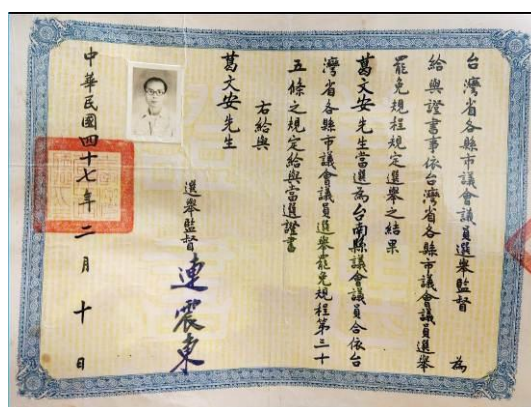 台灣省各縣市議會議員選舉監督 為
給與證書事依台灣省各縣市議會議員選舉
罷免規程規定選舉之結果
葛文安先生當選為台南縣議會議員合依台
灣省各縣市議會議員選舉罷免規程第三十
五條之規定給與當選證書
右給與
葛文安先生
選舉監督 連震東
中華民國四十七年二月十日